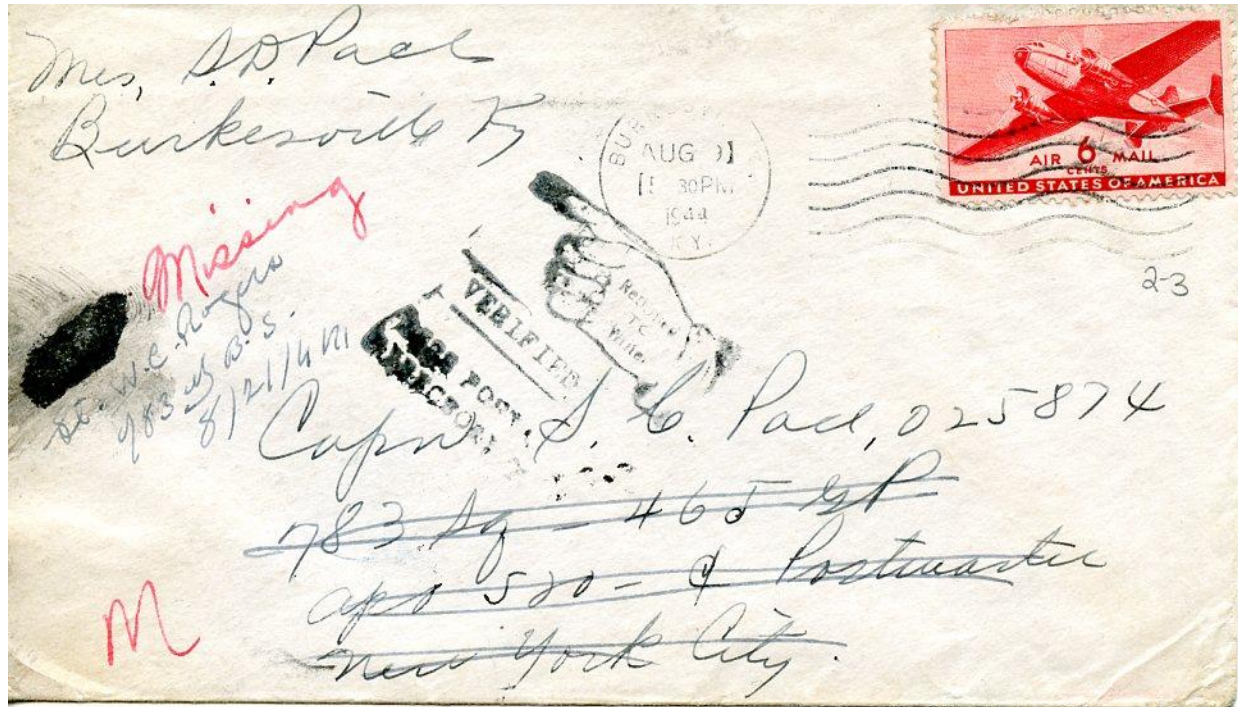 Mrs, S. D Pace
Burkesville Ky
AUG
30PM
1944
KY.
AIR 6 MAIL
CENTS
UNITED STATES OF AMERICA
2-3
Missing
W.C. Rogers
783 B.S.
8/21/44
Returned
To
Writer
VERIFIED
POST
Capn S. C. Pace, 025874
783 Sq - 465 GP
apo 520 - ¢ Postmaster
New York City.
M